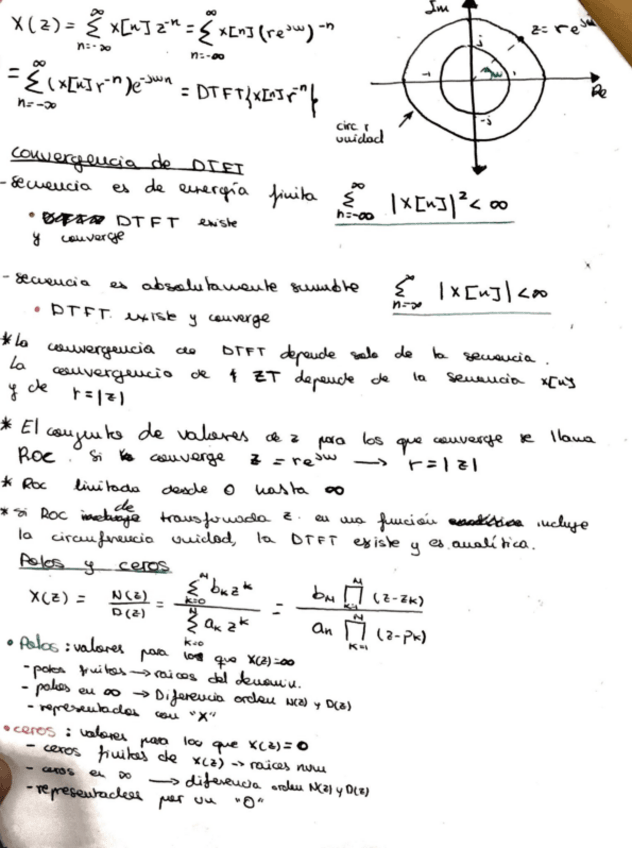 X(z) = ∑_{n=-∞}^{∞} x[n] z^{-n} = ∑_{n=-∞}^{∞} x[n] (re^{jω})^{-n}
= ∑_{n=-∞}^{∞} (x[n] r^{-n}) e^{-jωn} = DTFT{x[n] r^{-n}}
Im
z = re^{jω}
j
-1
1
-j
Re
circ r
unidad
Convergencia de DTFT
- Secuencia es de energía finita ∑_{n=-∞}^{∞} |x[n]|² < ∞
• DTFT existe
y converge
- secuencia es absolutamente sumable ∑_{n=-∞}^{∞} |x[n]| < ∞
• DTFT existe y converge
* La convergencia de DTFT depende solo de la secuencia.
La convergencia de ZT depende de la secuencia x[n]
y de r = |z|
* El conjunto de valores de z para los que converge se llama
ROC. Si converge z = re^{jω} → r = |z|
* Roc limitada desde 0 hasta ∞
* si ROC de transformada z en una función incluye
la circunferencia unidad, la DTFT existe y es analítica.
Polos y ceros
X(z) = N(z)/D(z) = ∑_{k=0}^{M} b_k z^k / ∑_{k=0}^{N} a_k z^k = b_M ∏_{k=1}^{M} (z-z_k) / a_n ∏_{k=1}^{N} (z-p_k)
• Polos: valores para los que X(z)=∞
- polos finitos → raíces del denomin.
- polos en ∞ → Diferencia orden N(z) y D(z)
- representados con "X"
• ceros: valores para los que X(z)=0
- ceros finitos de X(z) → raíces num
- ceros en ∞ → diferencia orden N(z) y D(z)
- representados por un "O"